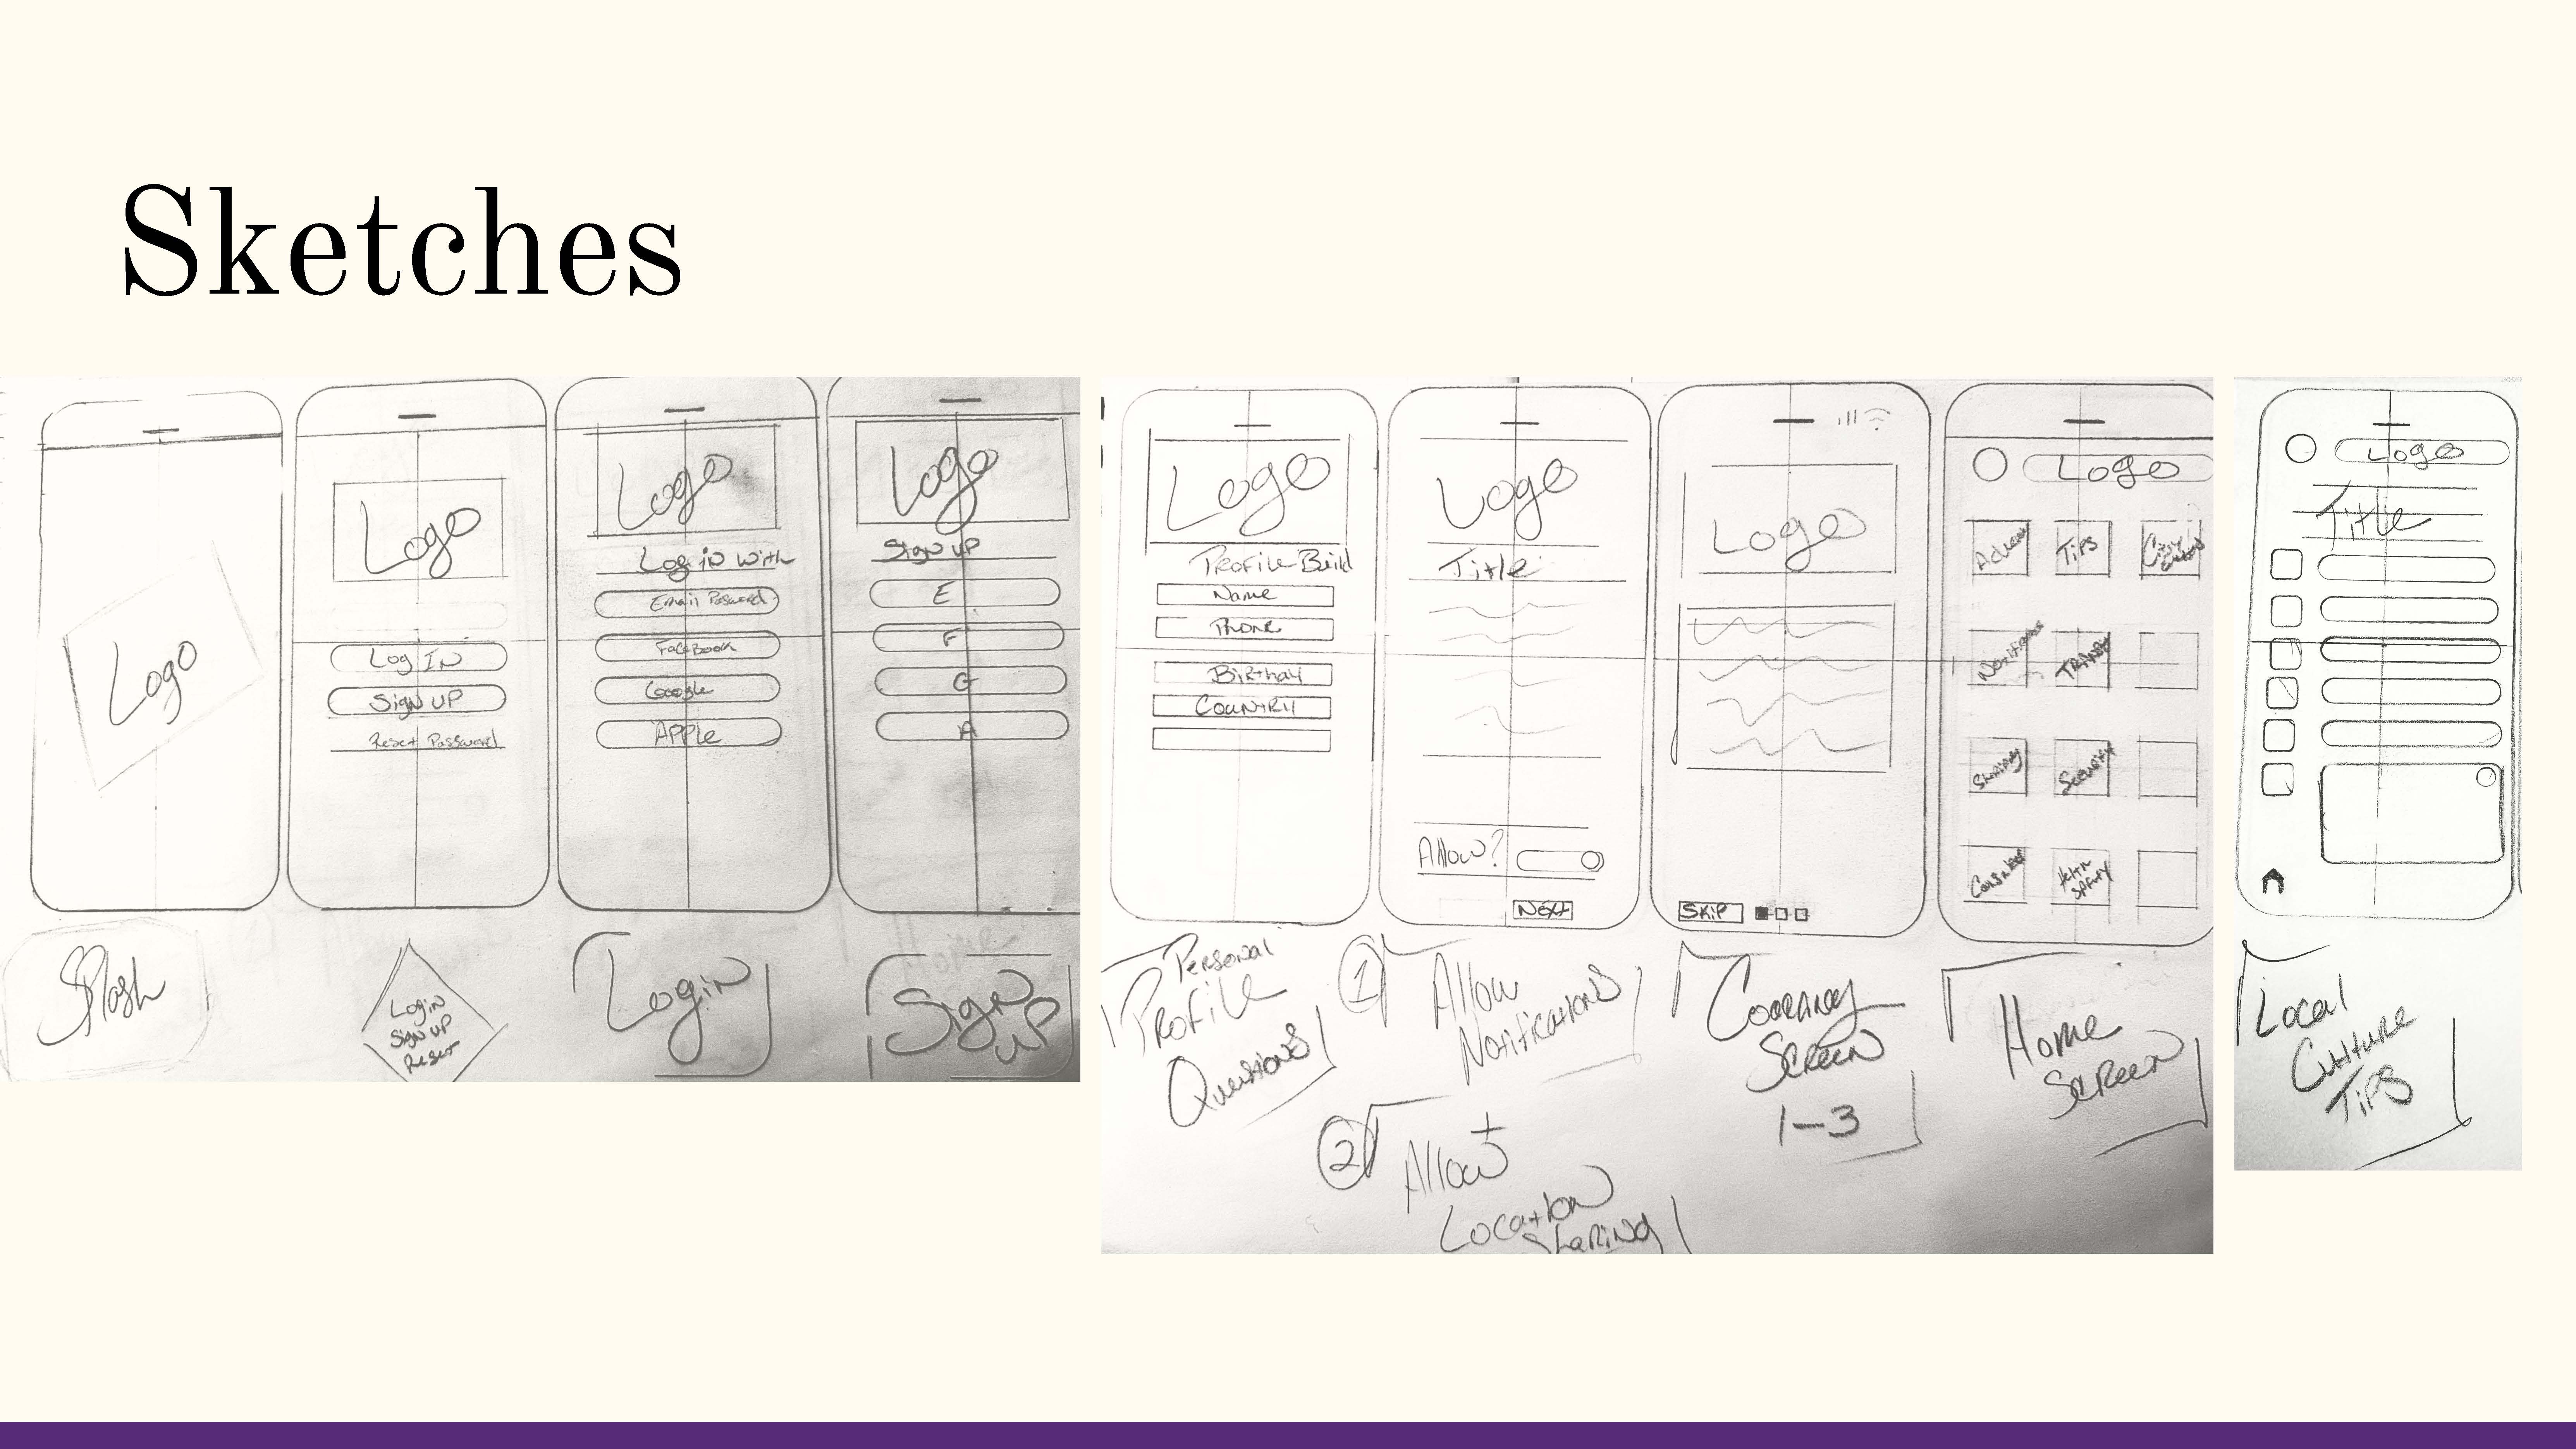 Sketches
Logo
Splash
Logo
Log IN
Sign UP
Reset Password
Login
Sign up
Reset
Logo
Log in With
Email Password
FaceBook
Google
APPle
Login
Logo
Sign UP
E
F
G
A
Sign
UP
Logo
Profile Build
Name
Phone
Birthday
Country
Personal
Profile
Questions
Logo
Title
Allow?
Next
1 Allow
Notifications
2 Allow
Location
Sharing
Logo
SKiP
Screen
1-3
Logo
TiPS
Sharing
Security
Home
Screen
Logo
Title
Local
Culture
TiPS